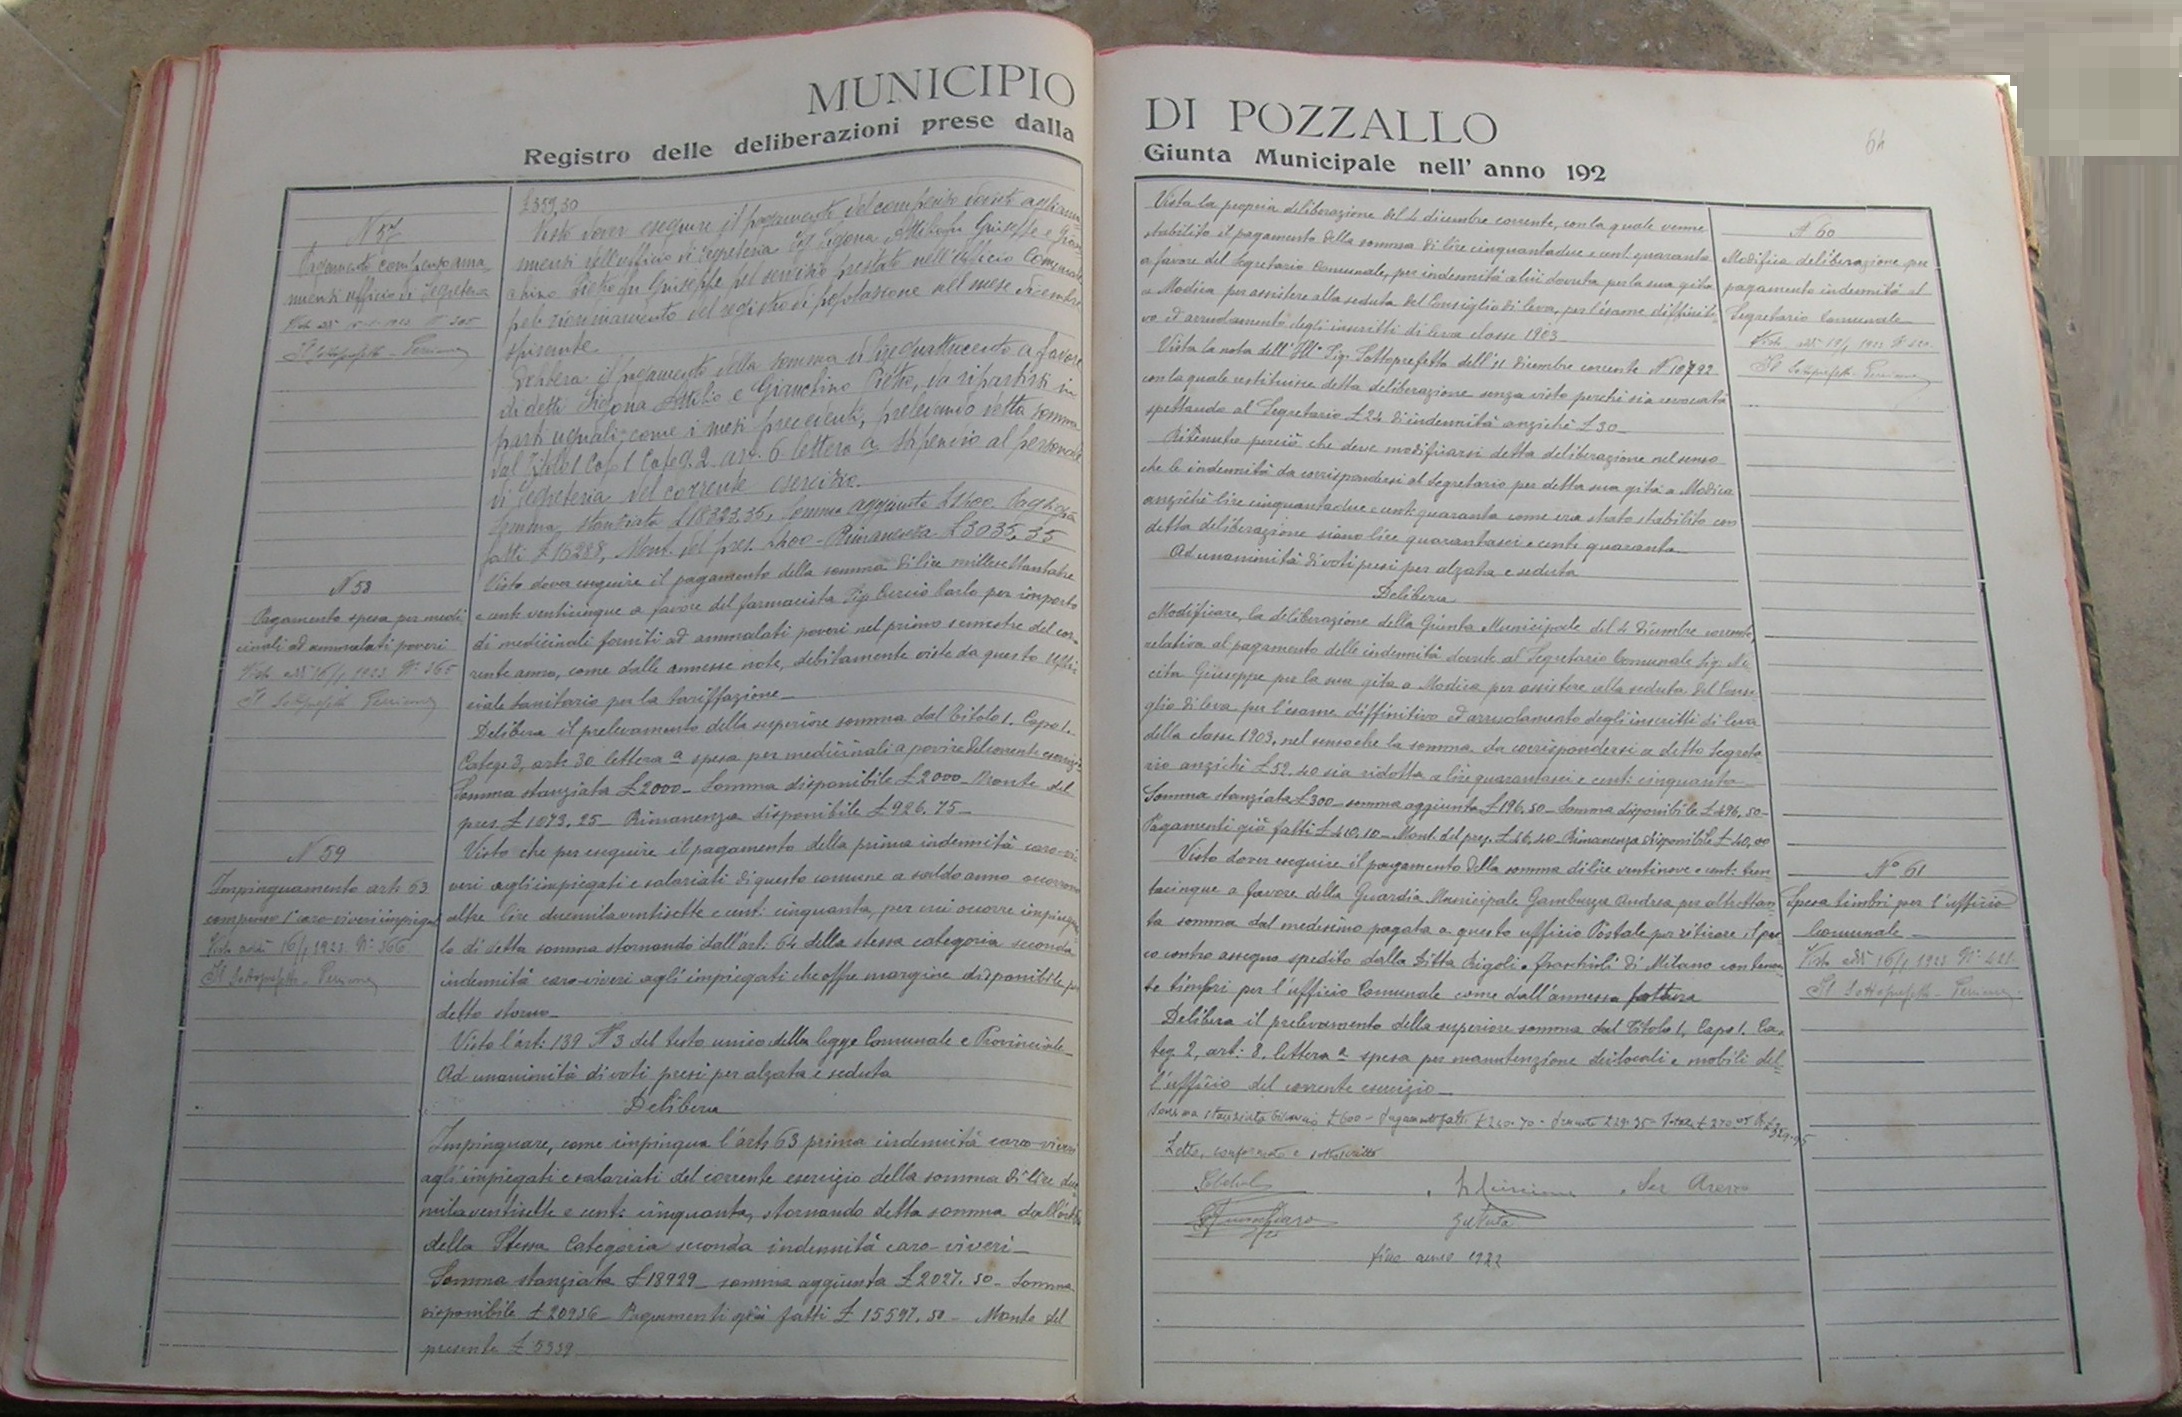 MUNICIPIO
Registro delle deliberazioni prese dalla
N 57
Pagamento compenso ama-
nuensi ufficio di Segreteria
Il Sottoprefetto
£359,30
Visto dover eseguire il pagamento del compenso dovuto agli ama-
nuensi dell'ufficio di Segreteria Sig Sigona Attilio fu Giuseppe e Gian-
chino Pietro fu Giuseppe pel servizio prestato nell'Ufficio Comunale
pel riordinamento del registro di popolazione nel mese dicembre
spirante
Delibera il pagamento della somma di lire quattrocento a favore
di detti Sigona Attilio e Gianchino Pietro, da ripartirsi in
parti uguali, come i mesi precedenti, prelevando detta somma
dal Titolo I Capo I Categ. 2 art. 6 lettera a stipendio al personale
di Segreteria del corrente esercizio.
Somma stanziata £18323,35, Somma aggiunta £1400 Pag.ti già
fatti £16288, Mont. del pres. 400 - Rimanenza £3035,35
N 58
Pagamento spesa per medi
cinali ad ammalati poveri
Visto addì 16/1 1923 N. 365
Il Sottoprefetto
Visto dover eseguire il pagamento della somma di lire millesettantatre
e cent. venticinque a favore del farmacista Sig Curcio Carlo per importo
di medicinali forniti ad ammalati poveri nel primo semestre del cor-
rente anno, come dalle annesse note, debitamente viste da questo Uffi-
ciale Sanitario per la tariffazione_
Delibera il prelevamento della superiore somma dal Titolo 1. Capo 1.
Categ. 3, art. 30 lettera a spesa per medicinali a poveri del corrente esercizio
Somma stanziata £2000_ Somma disponibile £2000_ Monte del
pres £1073.25_ Rimanenza disponibile £926.75_
N 59
Impinguamento art. 63
compenso 1° caro-viveri impiegati
Visto addì 16/1 1923. N. 366
Il Sottoprefetto
Visto che per eseguire il pagamento della prima indennità caro-vi-
veri agli impiegati e salariati di questo comune a saldo anno occorrono
altre lire duemilaventisette e cent. cinquanta, per cui occorre impinguar-
lo di detta somma stornando dall'art. 64 della stessa categoria seconda
indennità caro-viveri agli impiegati che offre margine disponibile per
detto storno_
Visto l'art. 139 N 3 del testo unico della legge Comunale e Provinciale_
Ad unanimità di voti presi per alzata e seduta
Delibera
Impinguare, come impingua l'art. 63 prima indennità caro-viveri
agli impiegati e salariati del corrente esercizio della somma di lire due-
milaventisette e cent. cinquanta, stornando detta somma dall'art. 64
della Stessa Categoria seconda indennità caro-viveri_
Somma stanziata £18929_ somma aggiunta £2027.50_ Somma
disponibile £20936_ Pagamenti già fatti £15597.50_ Monte del
presente £5339
DI POZZALLO
Giunta Municipale nell' anno 192
64
Vista la propria deliberazione del 4 dicembre corrente, con la quale venne
stabilito il pagamento della somma di lire cinquantadue e cent. quaranta
a favore del Segretario Comunale, per indennità a lui dovuta per la sua gita
a Modica per assistere alla seduta del Consiglio di leva, per l'esame diffiniti-
vo ed arruolamento degli inscritti di leva classe 1903_
Vista la nota dell'Ill° Sig. Sottoprefetto dell'11 Dicembre corrente N 10792
con la quale restituisce detta deliberazione senza visto perchè sia revocata
spettando al Segretario £24 di indennità anzichè £30_
Ritenuto perciò che deve modificarsi detta deliberazione nel senso
che le indennità da corrispondersi al Segretario per detta sua gita a Modica
anzichè lire cinquantadue e cent. quaranta come era stato stabilito con
detta deliberazione siano lire quarantasei e cent. quaranta_
Ad unanimità di voti presi per alzata e seduta
Delibera
Modificare, la deliberazione della Giunta Municipale del 4 Dicembre corrente,
relativa al pagamento delle indennità dovute al Segretario Comunale Sig. Ni-
cita Giuseppe per la sua gita a Modica per assistere alla seduta del Consi-
glio di leva per l'esame diffinitivo ed arruolamento degli inscritti di leva
della classe 1903, nel senso che la somma da corrispondersi a detto Segreta
rio anzichè £52.40 sia ridotta a lire quarantasei e cent. cinquanta_
Somma stanziata £300_ somma aggiunta £196.50_ Somma disponibile £496.50_
Pagamenti già fatti £410.10_ Mont. del pres. £46.40_ Rimanenza disponibile £40,00
N 60
Modifica deliberazione per
pagamento indennità al
Segretario Comunale_
Il Sottoprefetto
Visto dover eseguire il pagamento della somma di lire ventinove e cent. tren
tacinque a favore della Guardia Municipale Gambuzza Andrea per altrettan
ta somma dal medesimo pagata a questo ufficio Postale per ritirare il pac
co contro assegno spedito dalla Ditta Rigoli e Franchioli di Milano contenen
te timbri per l'ufficio Comunale come dall'annessa fattura
Delibera il prelevamento della superiore somma dal Titolo 1, Capo 1. Ca-
teg. 2, art. 8. lettera a spesa per manutenzione dei locali e mobili del-
l'ufficio del corrente esercizio_
Somma stanziata bilancio £600 - Pagamenti fatti £240.70 - Presente £29.35 Totale £270.05 R £329.95
Letto, confermato e sottoscritto
fine anno 1922
N° 61
Spesa timbri per l'ufficio
Comunale_
Visto addì 16/1 1923 N. 421
Il Sottoprefetto